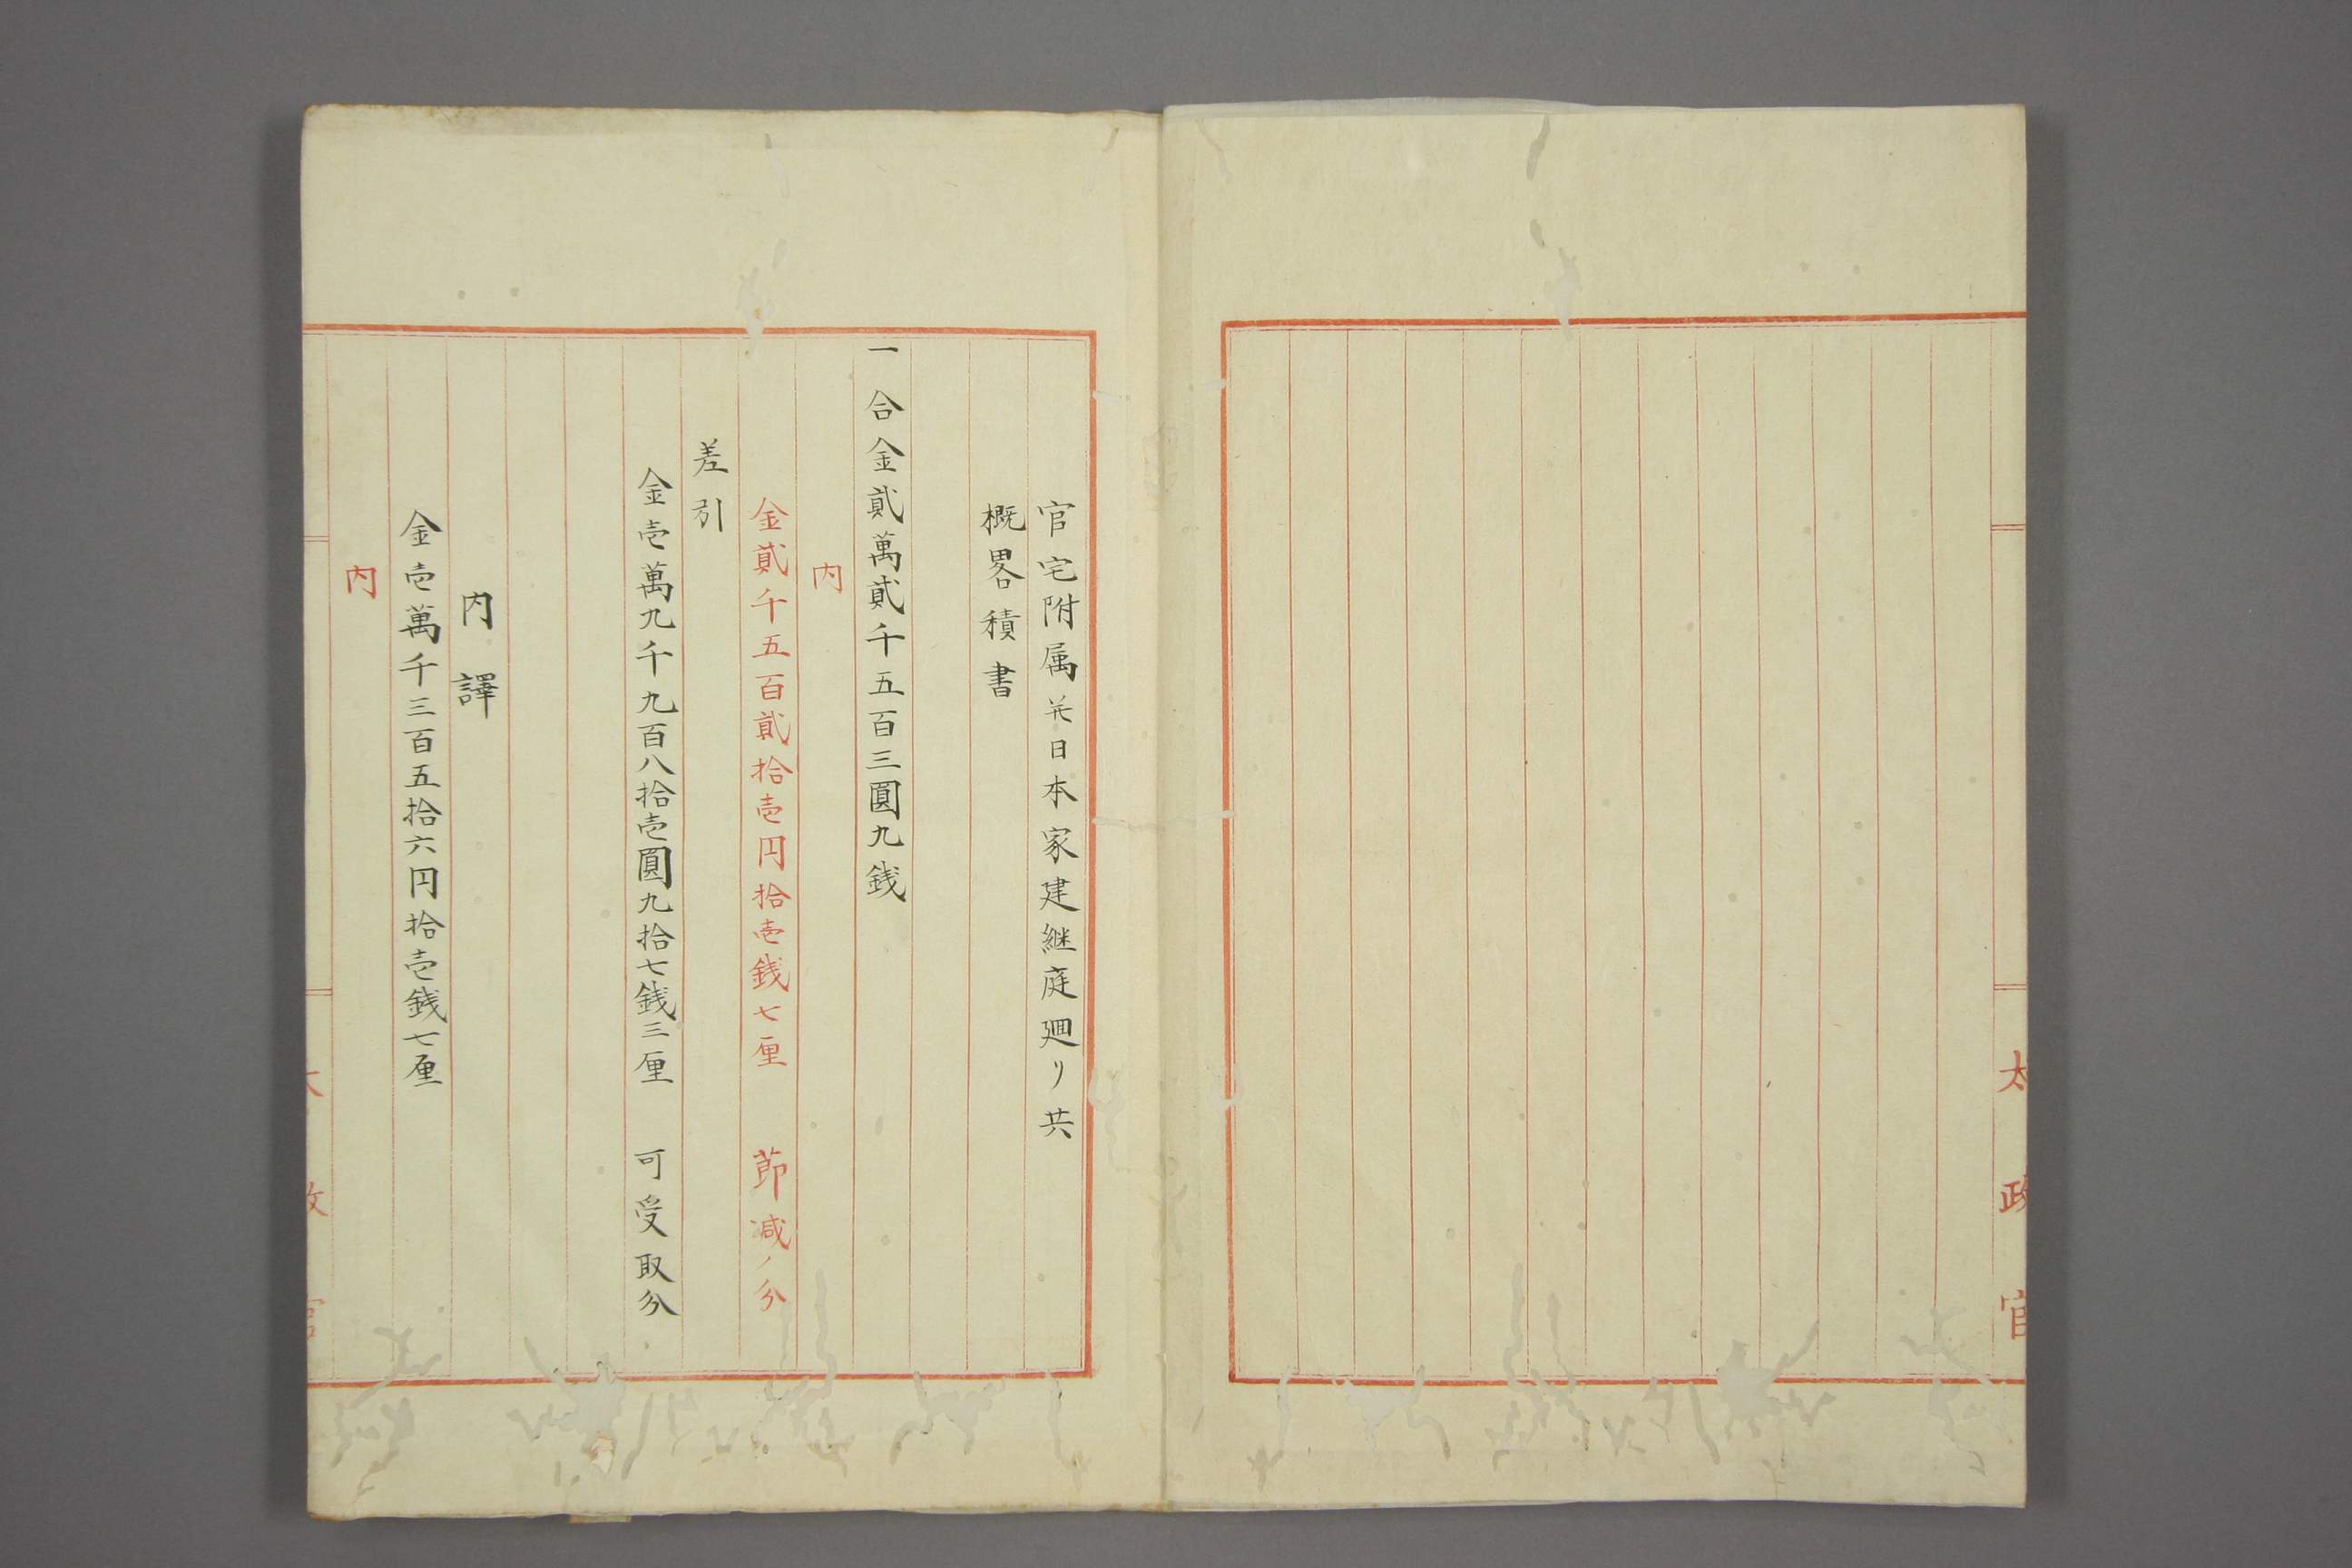 太政官
官宅附属并日本家建継庭廻リ共
概畧積書
一合金貳萬貳千五百三圓九銭
内
金貳千五百貳拾壱円拾壱銭七厘 節减ノ分
差引
金壱萬九千九百八拾壱圓九拾七銭三厘 可受取分
内譯
金壱萬千三百五拾六円拾壱銭七厘
内